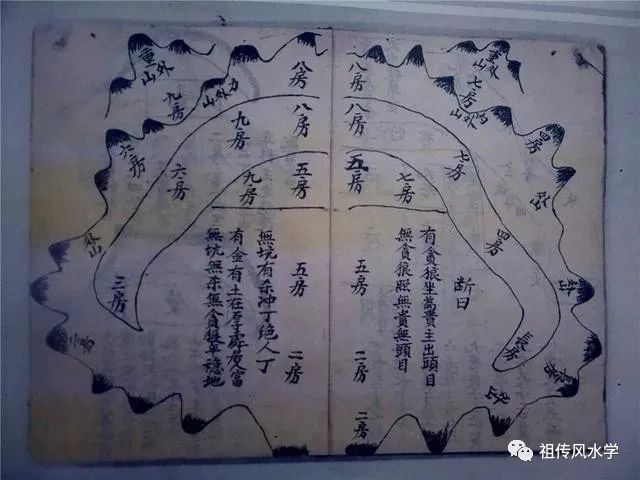 重外山
七房
内外山
四房
八房
八房
七房
四房
長房
五房
七房
断曰
有貪狼坐為貴主出頭目
無貪狼照無貴無頭目
五房
二房
二房
重外山
九房
外山
八房
八房
九房
六房
六房
外山
三房
五房
九房
無坑有杀冲丁绝人丁
無坑無杀無貪狼平穏地
五房
二房
三房
祖传风水学